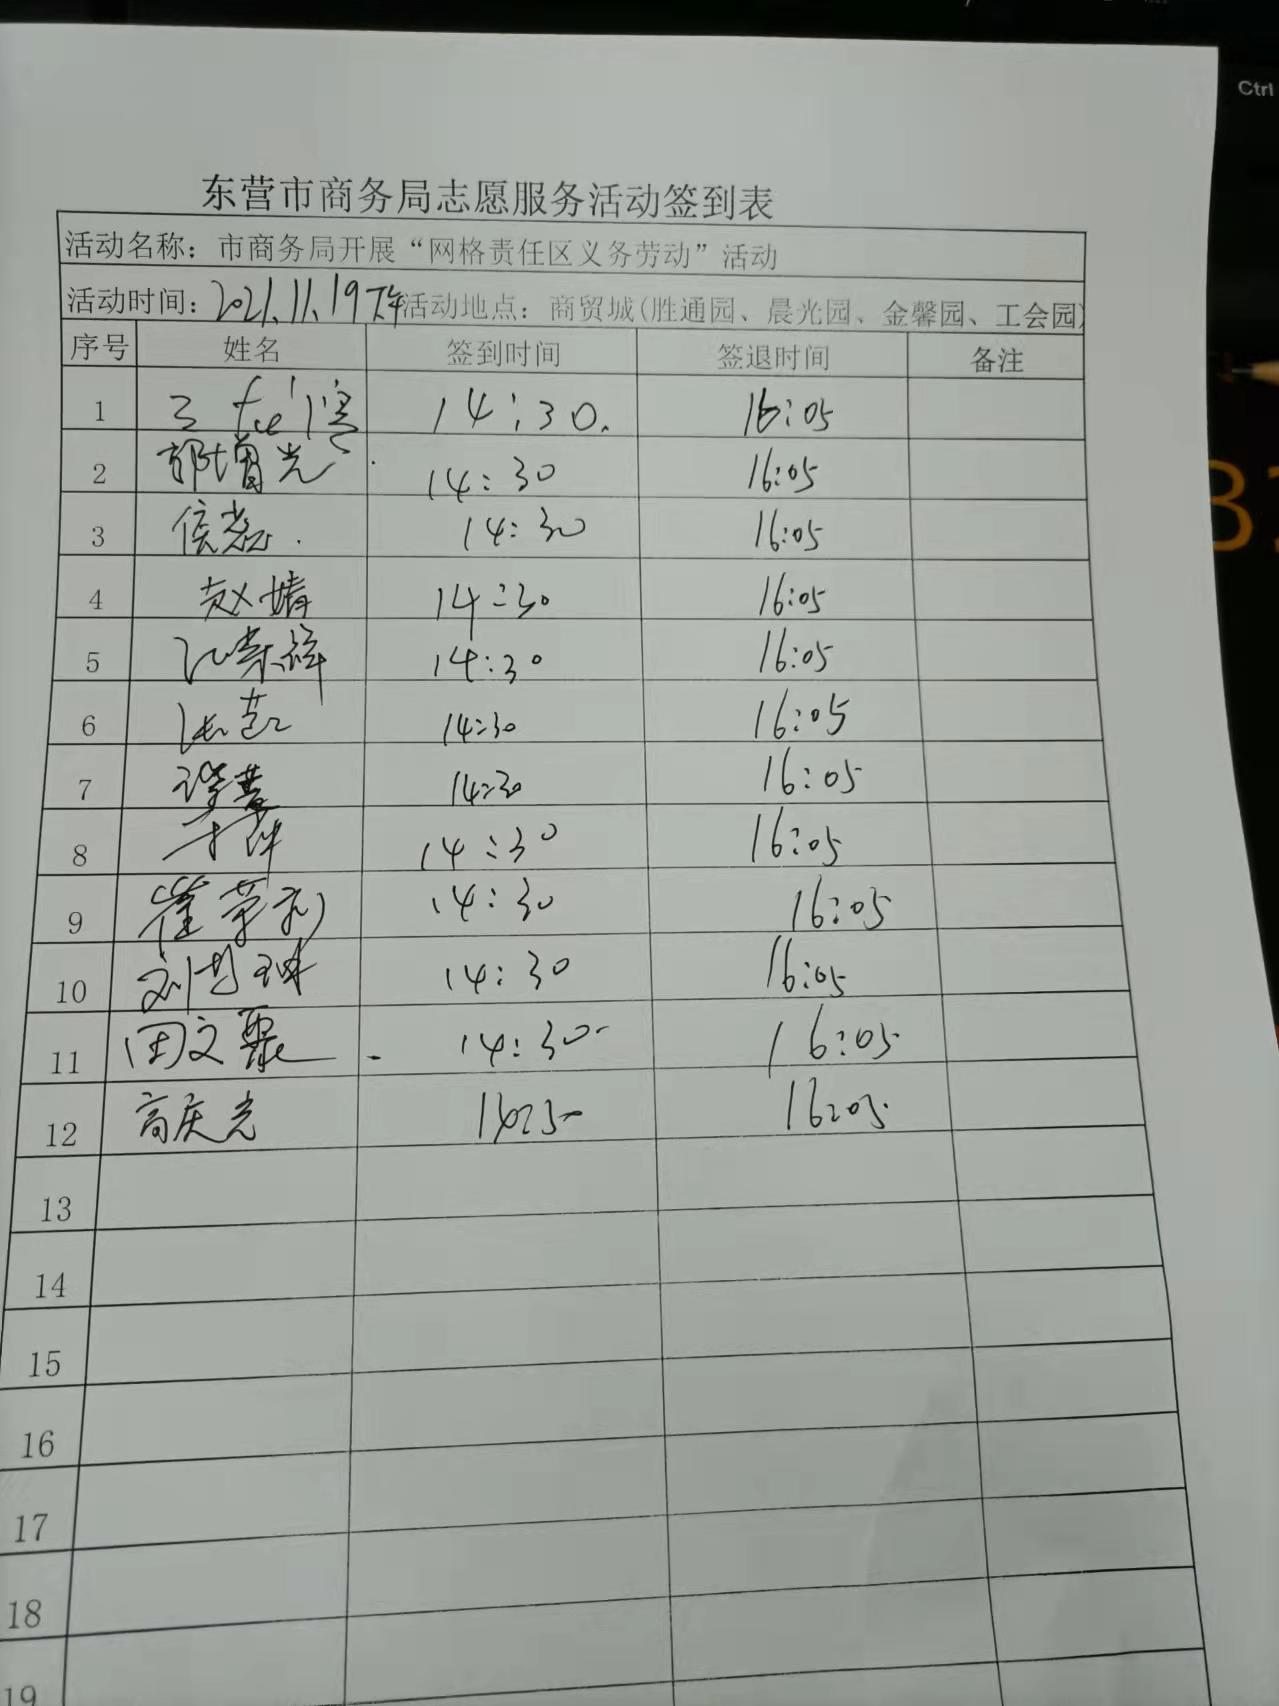 Ctrl
东营市商务局志愿服务活动签到表
活动名称：市商务局开展“网格责任区义务劳动”活动
活动时间：2021.11.19下午 活动地点：商贸城(胜通园、晨光园、金馨园、工会园)
序号 姓名 签到时间 签退时间 备注
1 14:30. 16:05
2 郭增光 14:30 16:05
3 侯 14:30 16:05
4 赵婧 14:30 16:05
5 14:30 16:05
6 14:30 16:05
7 14:30 16:05
8 14:30 16:05
9 崔荣利 14:30 16:05
10 刘 14:30 16:05
11 田文聚 14:30 16:05
12 高庆光 16:05
13
14
15
16
17
18
19